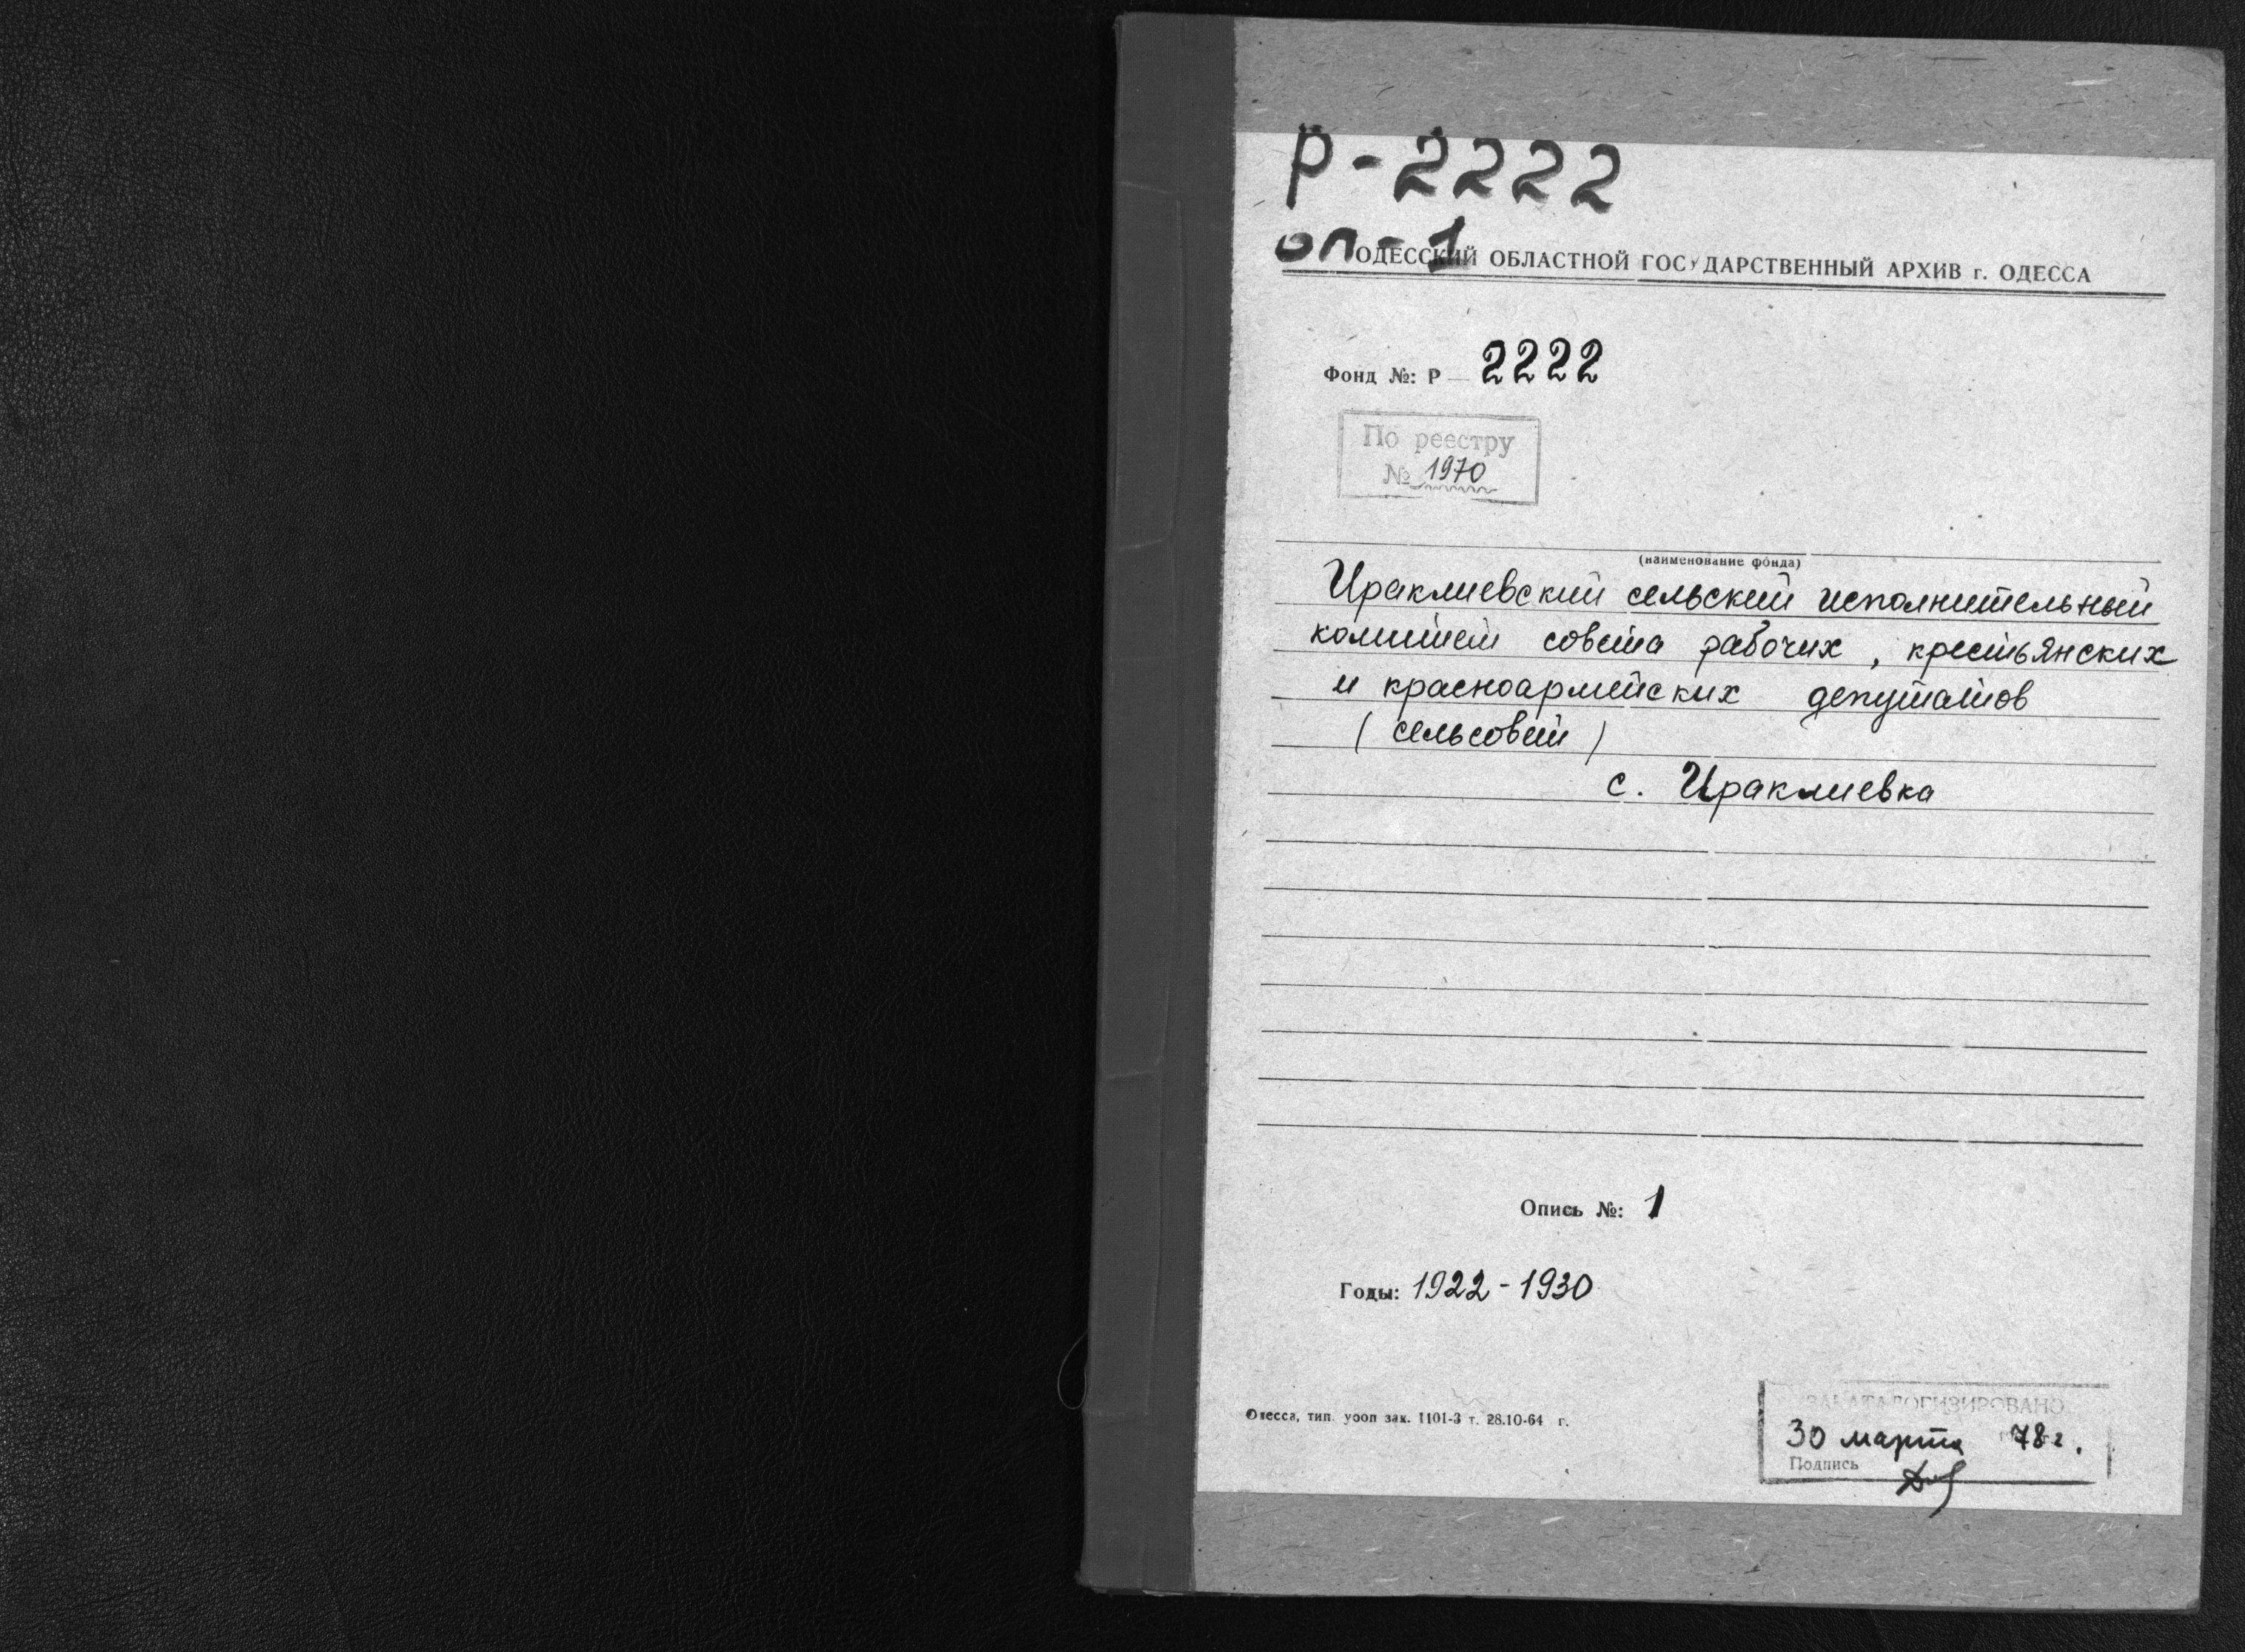 Р-2222
оп-1
ОДЕССКИЙ ОБЛАСТНОЙ ГОСУДАРСТВЕННЫЙ АРХИВ г. ОДЕССА
Фонд №: Р — 2222
По реестру
№ 1970
(наименование фонда)
Ираклиевский сельский исполнительный
комитет совета рабочих, крестьянских
и красноармейских депутатов
(сельсовет)
с. Ираклиевка
Опись №: 1
Годы: 1922-1930
Одесса, тип. уооп зак. 1101-3 т. 28.10-64 г.
ЗАКАТАЛОГИЗИРОВАНО
30 марта 78 г.
Подпись